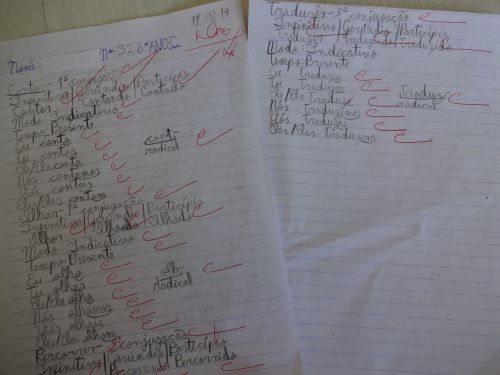 19.08.19
Nome: Nº 32 6º ANO C
Contar- 1ª conjugação
Infinitivo | Gerúndio | Particípio
Contar | Contando | Contado
Modo: Indicativo
Tempo: Presente
Eu conto
Tu contas cont
Ele/Ela conta radical
Nós contamos
Vós contais
Eles/Elas contam
Olhar- 1ª conjugação
Infinitivo | Gerúndio | Particípio
Olhar | Olhando | Olhado
Modo: Indicativo
Tempo: Presente
Eu olho
Tu olhas olh
Ele/Ela olha radical
Nós olhamos
Vós olhais
Eles/Elas olham
Percorrer- 2ª conjugação
Infinitivo | Gerúndio | Particípio
Percorrido
Traduzir- 3ª conjugação
Infinitivo | Gerúndio | Particípio
Traduzir | Traduzindo | Traduzido
Modo: Indicativo
Tempo: Presente
Eu Traduzo
Tu Traduzes
Ele/Ela Traduz Traduz
Nós Traduzimos radical
Vós Traduzes
Eles/Elas Traduzem